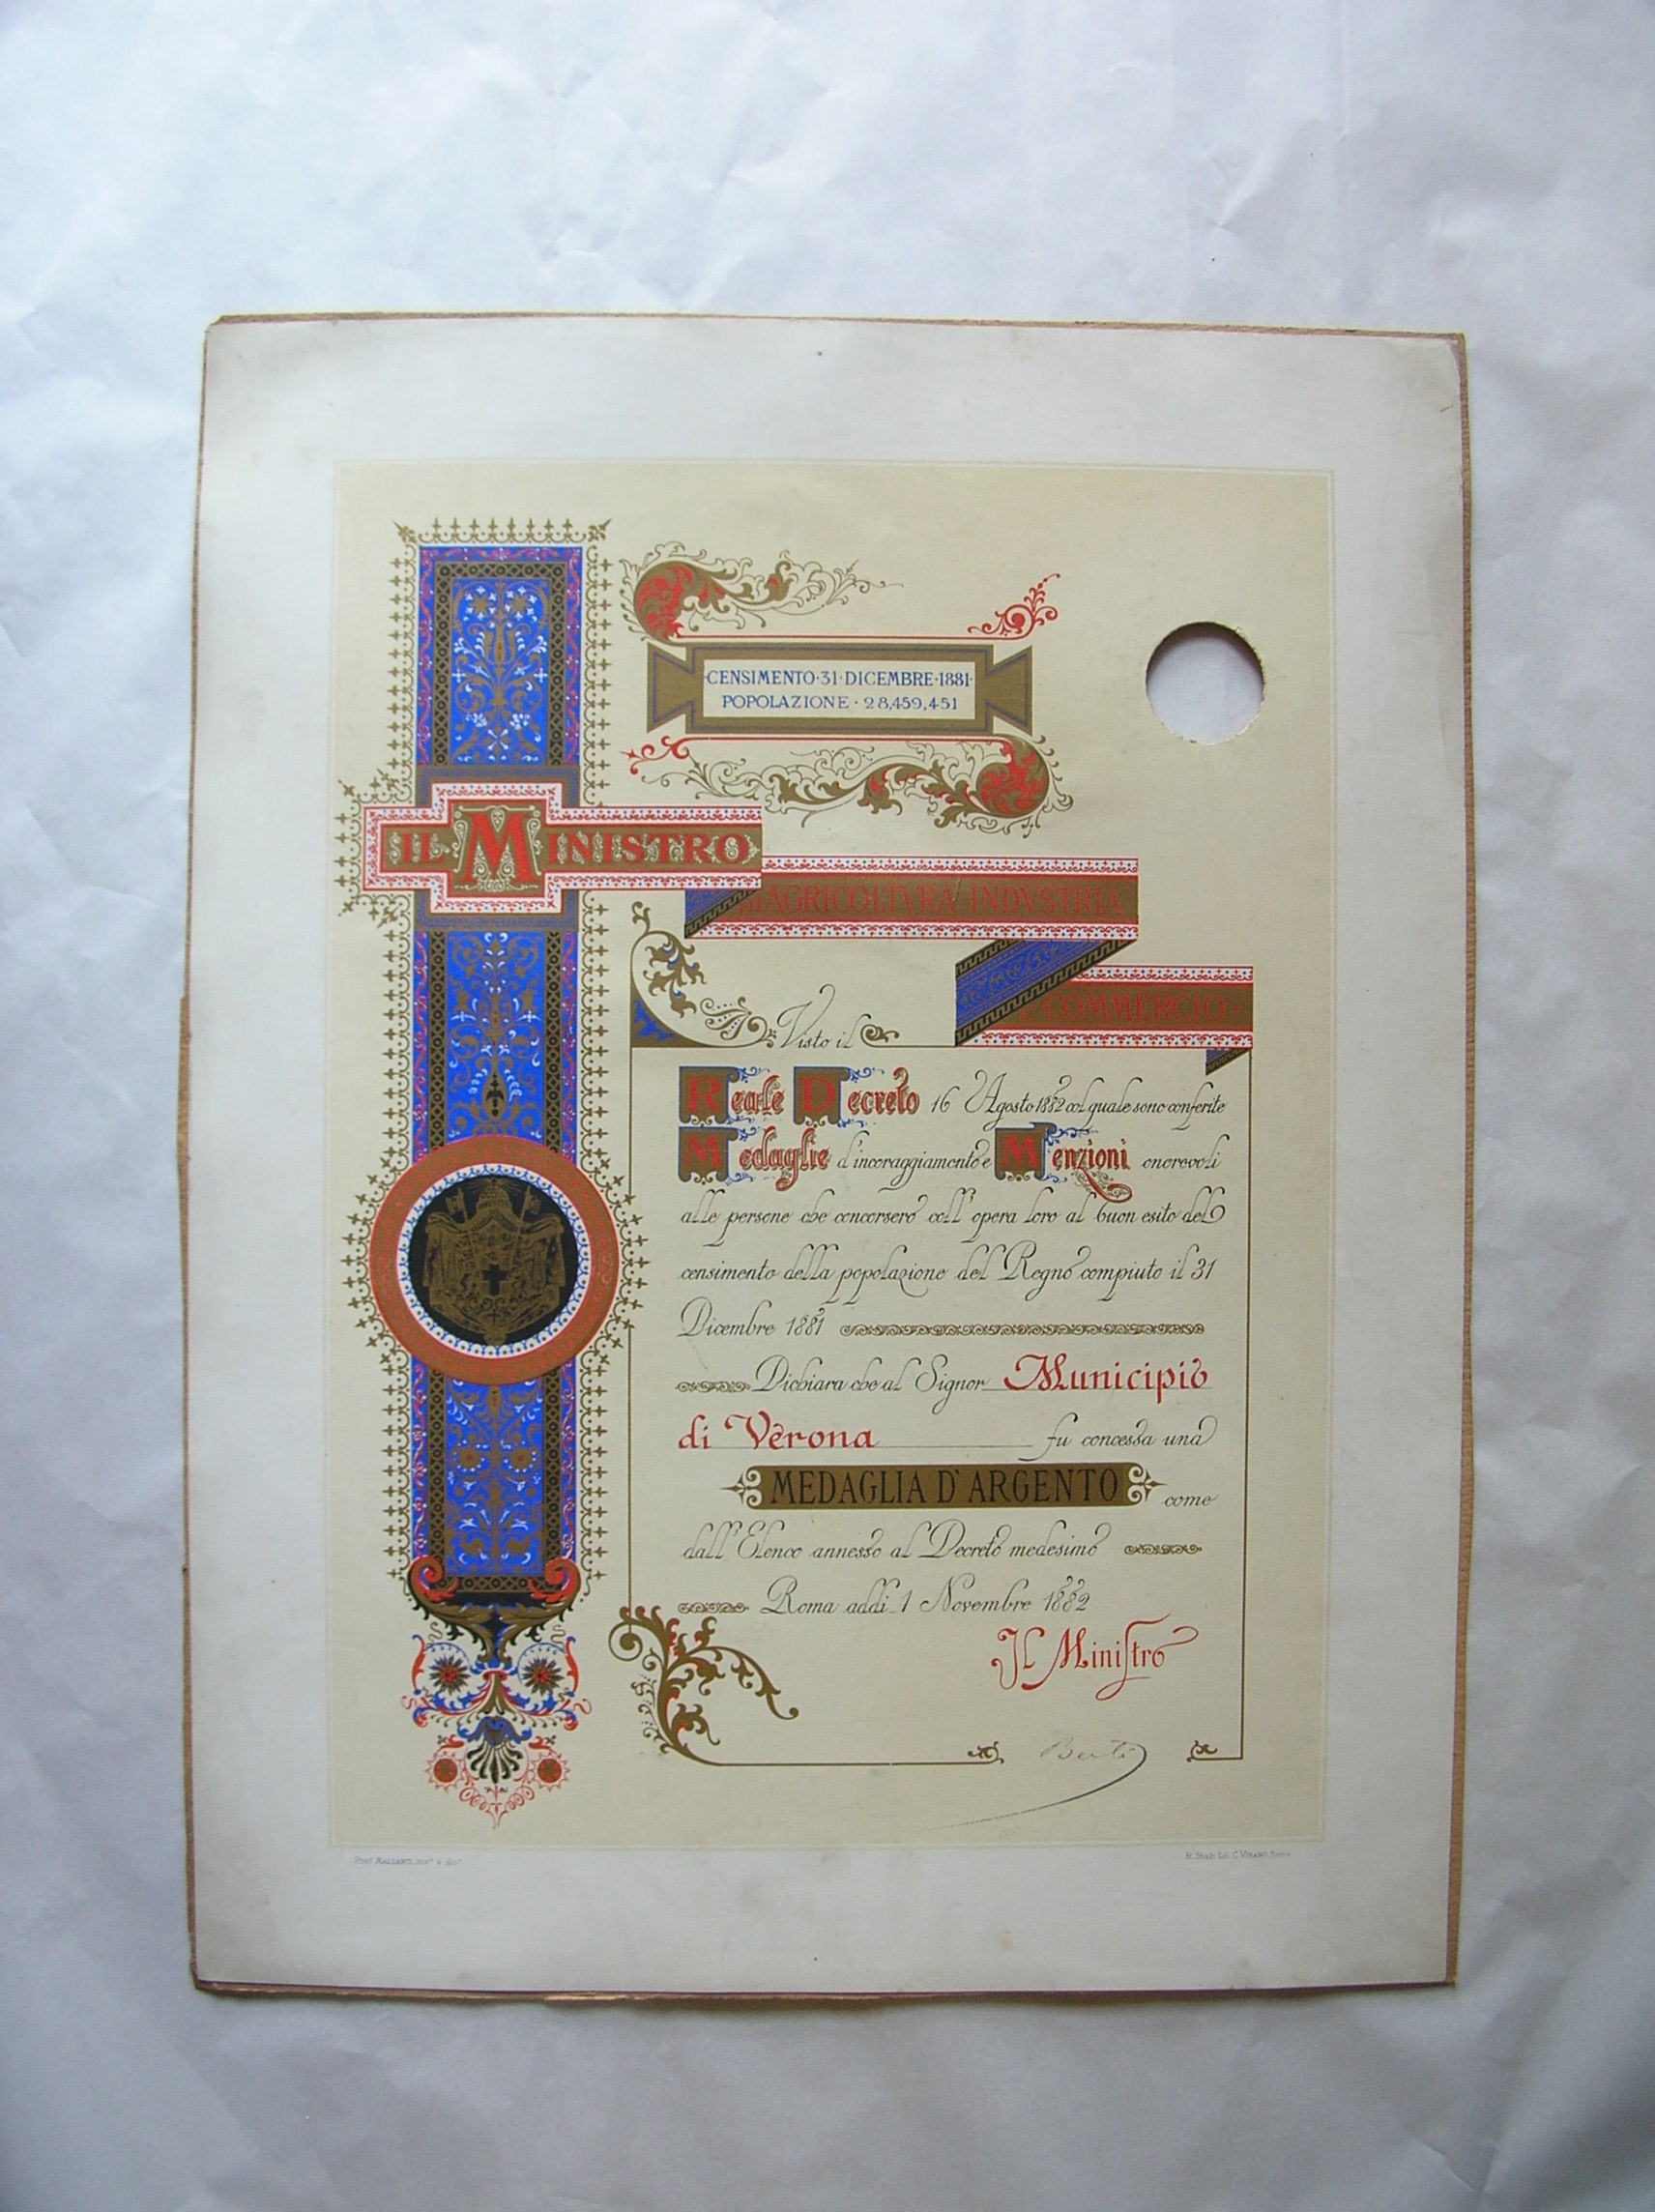 CENSIMENTO·31·DICEMBRE·1881·
POPOLAZIONE·28,459,451
IL MINISTRO
DI AGRICOLTVRA INDVSTRIA
E COMMERCIO
Visto il
Reale Decreto 16 Agosto 1882 col quale sono conferite
Medaglie d'incoraggiamento e Menzioni onorevoli
alle persone che concorsero coll'opera loro al buon esito del
censimento della popolazione del Regno compiuto il 31
Dicembre 1881
Dichiara che al Signor Municipio
di Verona fu concessa una
MEDAGLIA D'ARGENTO come
dall'Elenco annesso al Decreto medesimo
Roma addi 1 Novembre 1882
Il Ministro
Berti
Prof. Mazzanti inv. e dis.
R. Stab. Lit. C. Virano Roma